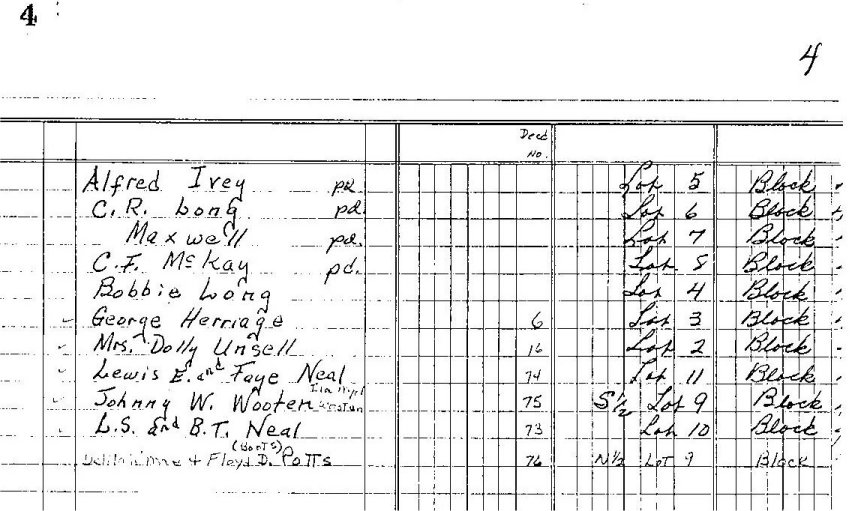 4
4
Deed
No.
Alfred Ivey pd Lot 5 Block
C.R. Long pd. Lot 6 Block
Maxwell pd. Lot 7 Block
C.F. McKay pd. Lot 8 Block
Bobbie Long Lot 4 Block
George Herriage 6 Lot 3 Block
Mrs. Dolly Unsell 16 Lot 2 Block
Lewis E. and Faye Neal 74 Lot 11 Block
Johnny W. Wooten 75 S½ Lot 9 Block
L.S. and B.T. Neal 73 Lot 10 Block
(Boots)
+ Floyd D. Potts 76 N½ Lot 9 Block